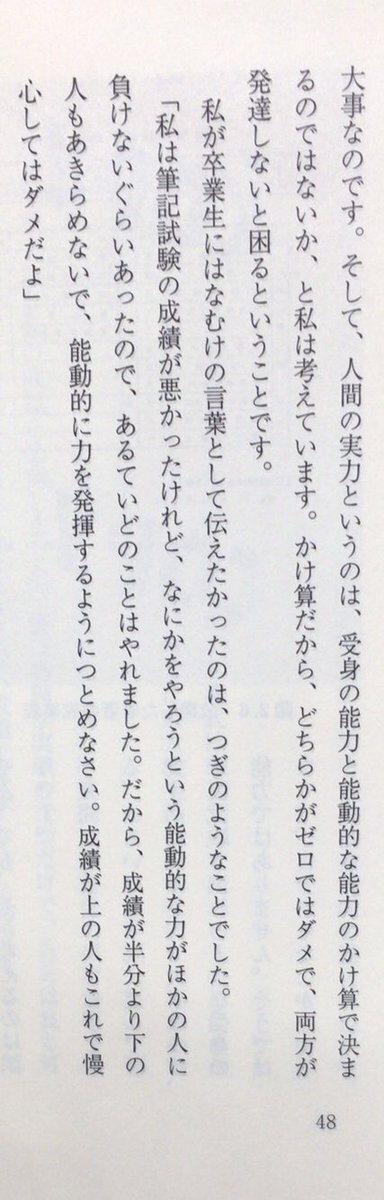 大事なのです。そして、人間の実力というのは、受身の能力と能動的な能力のかけ算で決ま
るのではないか、と私は考えています。かけ算だから、どちらかがゼロではダメで、両方が
発達しないと困るということです。
私が卒業生にはなむけの言葉として伝えたかったのは、つぎのようなことでした。
「私は筆記試験の成績が悪かったけれど、なにかをやろうという能動的な力がほかの人に
負けないぐらいあったので、あるていどのことはやれました。だから、成績が半分より下の
人もあきらめないで、能動的に力を発揮するようにつとめなさい。成績が上の人もこれで慢
心してはダメだよ」
48